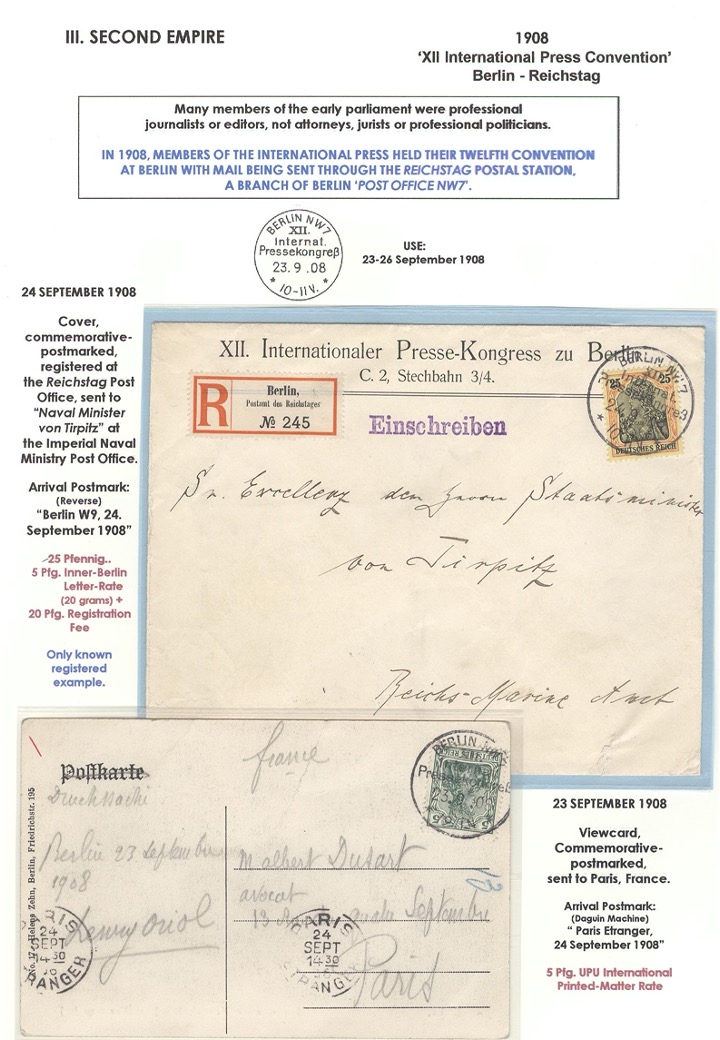 III. SECOND EMPIRE
1908
‘XII International Press Convention’
Berlin - Reichstag
Many members of the early parliament were professional
journalists or editors, not attorneys, jurists or professional politicians.
IN 1908, MEMBERS OF THE INTERNATIONAL PRESS HELD THEIR TWELFTH CONVENTION
AT BERLIN WITH MAIL BEING SENT THROUGH THE REICHSTAG POSTAL STATION,
A BRANCH OF BERLIN ‘POST OFFICE NW7’.
BERLIN NW7
XII.
Internat.
Pressekongreß
23.9.08
* 10-11V. *
USE:
23-26 September 1908
24 SEPTEMBER 1908
Cover,
commemorative-
postmarked,
registered at
the Reichstag Post
Office, sent to
“Naval Minister
von Tirpitz” at
the Imperial Naval
Ministry Post Office.
Arrival Postmark:
(Reverse)
“Berlin W9, 24.
September 1908”
25 Pfennig..
5 Pfg. Inner-Berlin
Letter-Rate
(20 grams) +
20 Pfg. Registration
Fee
Only known
registered
example.
XII. Internationaler Presse-Kongress zu Berlin
C. 2, Stechbahn 3/4.
R
Berlin,
Postamt des Reichstages
№ 245
Einschreiben
BERLIN NW7
25 25
DEUTSCHES REICH
Sr. Excellenz dem Herrn Staatsminister
von Tirpitz
Reichs-Marine Amt
Postkarte
Drucksache
france
BERLIN NW7
Pressekongreß
23.9.08
Berlin 23 septembre
1908
henry oriol
M albert Dusart
avocat
13 quatre Septembre
Paris
PARIS
24
SEPT
14 30
ETRANGER
PARIS
24
SEPT
14 30
ETRANGER
No. 17. Helene Zehn, Berlin, Friedrichstr. 195
23 SEPTEMBER 1908
Viewcard,
Commemorative-
postmarked,
sent to Paris, France.
Arrival Postmark:
(Daguin Machine)
“ Paris Etranger,
24 September 1908”
5 Pfg. UPU International
Printed-Matter Rate